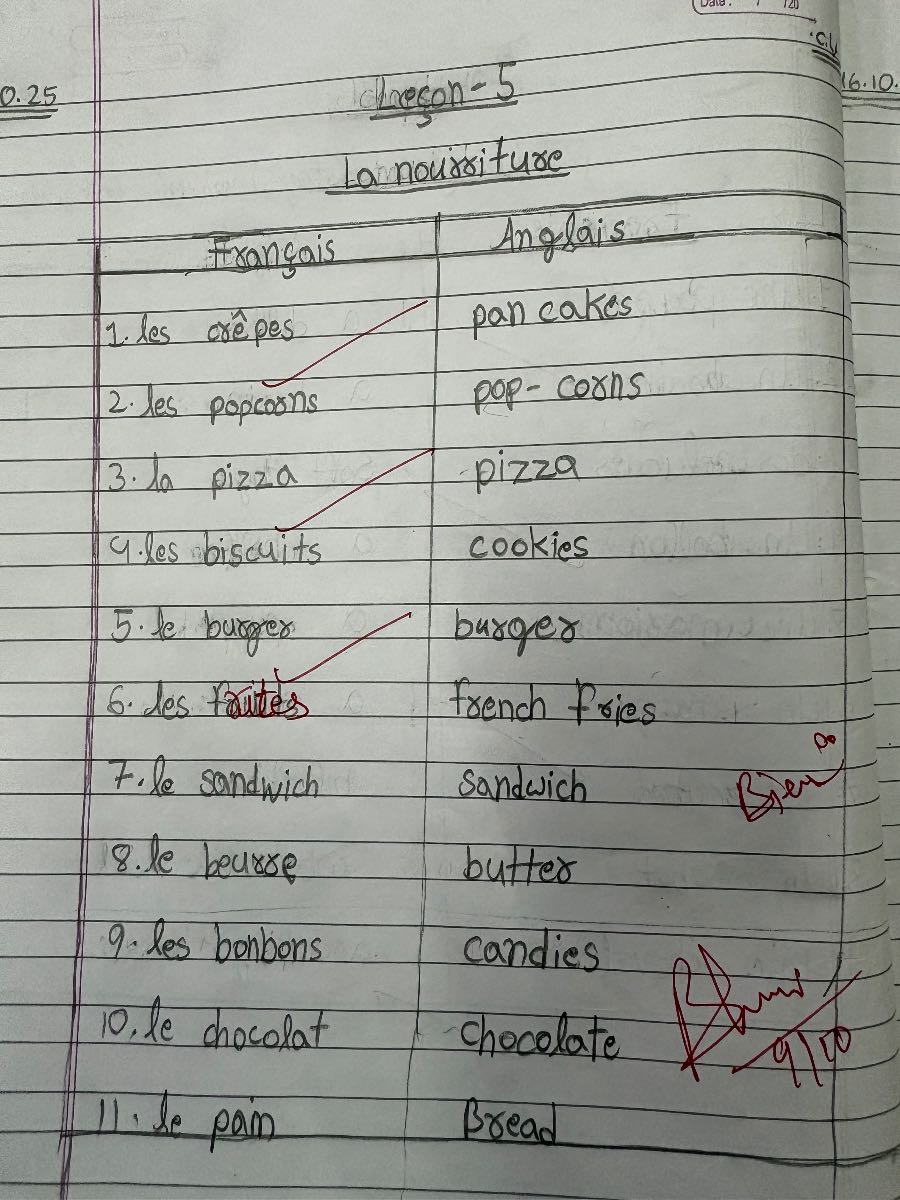 Date: / /20
C.W
0.25
16.10.
Leçon-5
La nourriture
Français Anglais
1. les crêpes pan cakes
2. les popcorns pop-corns
3. la pizza pizza
4. les biscuits cookies
5. le burger burger
6. les french fries
7. le sandwich sandwich
Bien
8. le beurre butter
9. les bonbons candies
10. le chocolat chocolate
11. le pain Bread